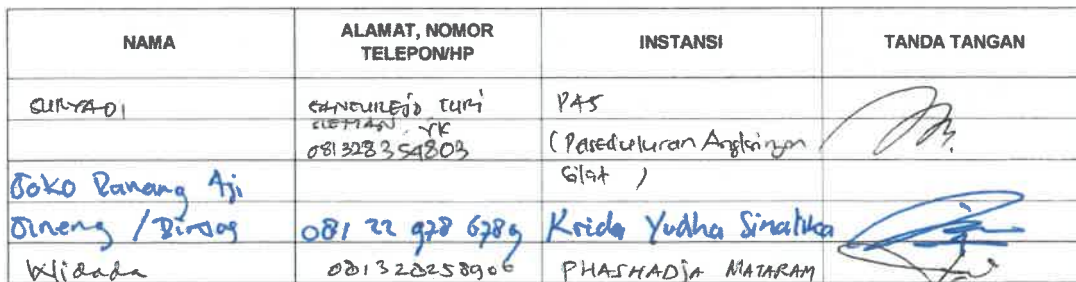 NAMA ALAMAT, NOMOR TELEPON/HP INSTANSI TANDA TANGAN
SURYADI
TURI PAS
SLEMAN YK
081328354803 (Paseduluran Angkringan
Silat )
Joko Danang Aji
/ 081 22 978 6789 Krida Yudha Sinalika
Widada 081328258906 PHASHADJA MATARAM